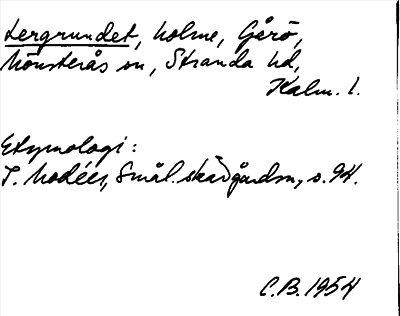 Lergrundet, holme, Gårö,
Mönsterås sn, Stranda hd,
Kalm. l.
Etymologi:
T. Modéer, Smål. skärgårdsn, s. 94.
C.B. 1954